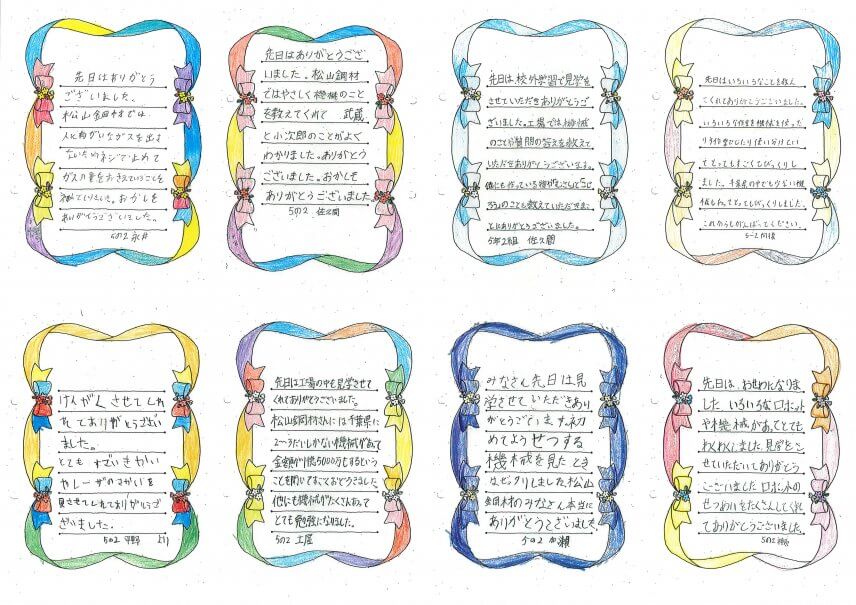 先日はありがとう
ございました。
松山鋼材では、
ガスの量をおさえていることを
おかしを
ありがとうございました。
5の2 永井
先日はありがとうござ
いました。松山鋼材
ではやさしく機械のこと
を教えてくれて 武蔵
と小次郎のことがよく
わかりました。ありがとう
ございました。おかしも
ありがとうございました
5の2 佐久間
先日は、校外学習で見学を
させていただきありがとうご
ざいました。工場では機械
のことや質問の答えを教えて
いただきありがとうございます。
ろのことも教えていただきまこ
とにありがとうございました。
5年2組 佐久間
先日はいろいろなことを教え
くれてありがとうございました。
いろいろな作業を機械を使った
り手作業でしたり使い分けてい
てとってもすごくてびっくりし
ました。千葉県の中でも少ない機
械もあってとってもびっくりしました。
これからもがんばってください。
けんがくさせてくれ
てありがとうござい
ました。
とても すごいきかい
やレーザーの
見させてくれてありがとうご
ざいました。
5の2 平野 より
先日は工場の中を見学させて
くれてありがとうございました。
松山鋼材さんには千葉県に
2〜3だいしかない機械があって
金額が1億5000万もするという
ことを聞いてすごくおどろきました。
他にも機械がたくさんあって
とても勉強になりました。
5の2 土屋
みなさん先日は見
学させていただきあり
がとうございます。初
めてようせつする
機械を見たとき
はビックリしました 松山
鋼材のみなさん本当に
ありがとうございました
5の2 加瀬
先日は、おせわになりま
した いろいろなロボット
や機械があってとても
わくわくしました 見学をさ
せていただいてありがとう
ございました ロボットの
せつめいをたくさんしてくれ
てありがとうございました